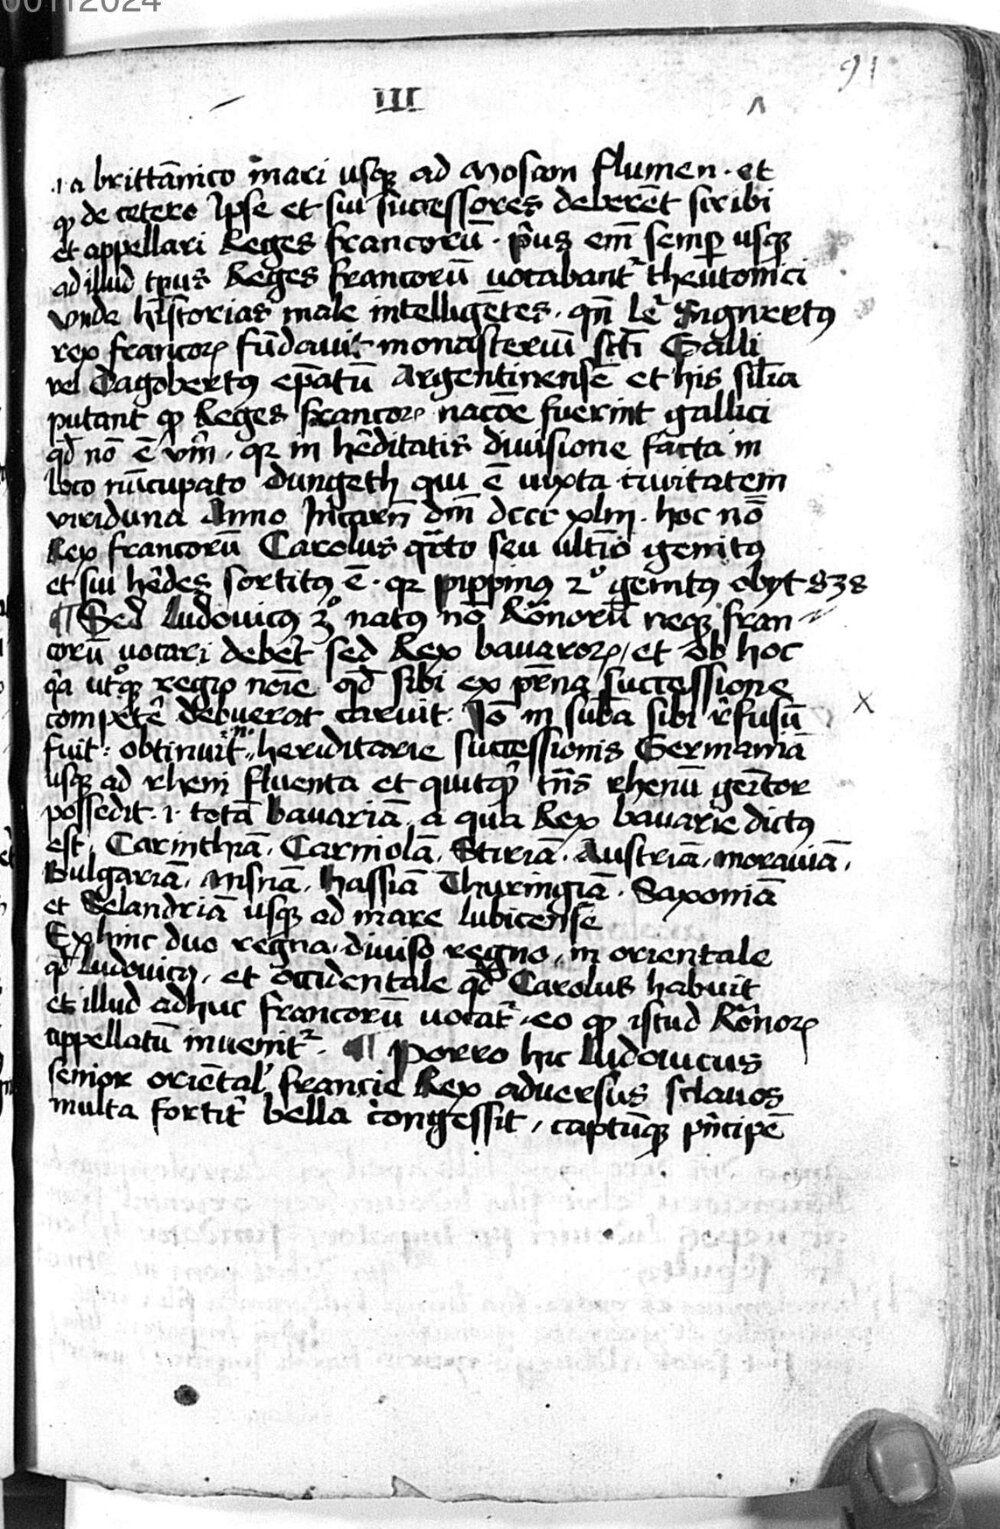 00112024
91
III
.i. a brittānico mari usqꝫ ad Mosam flumen · et
ꝙ de cetero Ipse et sui successores deberēt scribi
et appellari Reges francorū · p̄us em̄ semꝑ usqꝫ
ad illud tp̄us Reges francorū uocabant᷑ theutonici
vnde historias male intelligētes · qn̄ le᷑
rex francoꝝ fūdauit monasteriū scti Galli
vel Dagobertꝰ ep̄atū Argentinensē et his sil̄ia
putant ꝙ Reges francoꝝ nacōe fuerint gallici
qd̄ nō ē vm̄ · qꝛ in hēditatis diuisione facta in
loco nūcupato Dungeth qui ē iuxta ciuitatem
viriduna Anno Incarn̄ dm̄ dccc xliij · hoc nō̄
Rex francorū Carolus q̄rto seu ultīo genitꝰ
et sui hēdes sortitꝰ ē · qꝛ pippinꝰ 2º genitꝰ obyt 838
¶ Sed ludouicꝰ 3º natꝰ nō Rōnorū neqꝫ fran
corū uocari debet᷑ sed Rex bauaroꝝ / et ob hoc
q̄a utºqꝫ regiꝰ noīe qd̄ sibi ex pr̄na successione
competē debuerat caruit · Iō in sub̄a sibi r̄fusū
fuit : obtinuit · n · heriditarie successionis Germaniā
usqꝫ ad rheni fluenta et quitqͥd tn̄s rhenū geītor
possedit · i · totā bauariā · a qua Rex bauarie dictꝰ
est, Carinthiā · Carniolā, Stiriā · Austriā, morauiā,
Bulgariā, hassiā Thuringiā · Saxoniā
et Selandriā usqꝫ ad mare lubicensē
Ex hinc duo regna, diuiso regno, in orientale
qd̄ ludouicꝰ, et occidentale qd̄ Carolus habuit
et illud adhuc francorū uocat᷑, eo ꝙ istud Rōnoꝝ
appellatū inuenit᷑ · ¶ Porro hic ludouicus
senior oriētal᷑ francie Rex aduersus sclauos
multa fortit᷑ bella congessit, captūqꝫ pn̄cipē
x